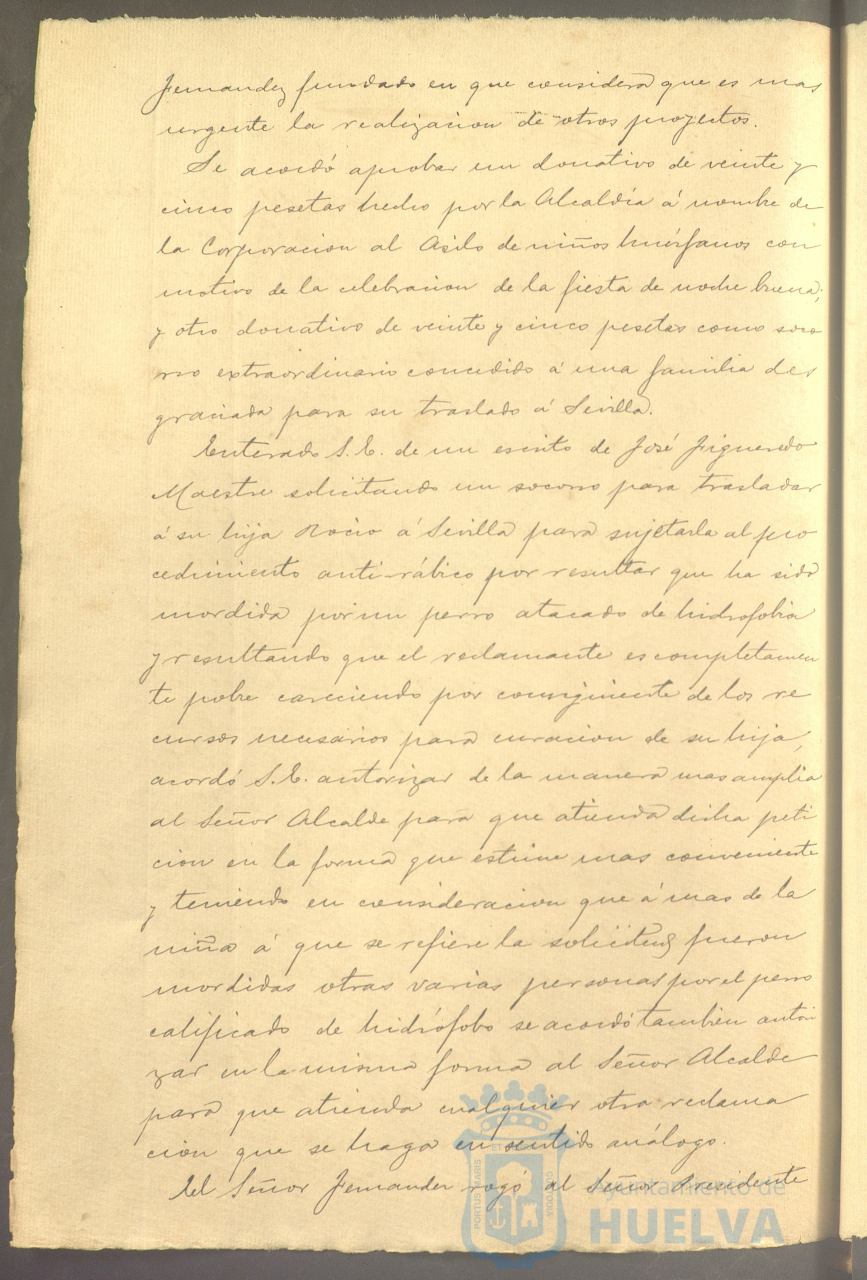 Fernandez fundado en que considera que es mas
urgente la realizacion de otros proyectos.
Se acordó aprobar un donativo de veinte y
cinco pesetas hecho por la Alcaldía á nombre de
la Corporacion al Asilo de niños huérfanos con
motivo de la celebracion de la fiesta de noche buena;
y otro donativo de veinte y cinco pesetas como soco
rro extraordinario concedido á una familia des
graciada para su traslado á Sevilla.
Enterado S.E. de un escrito de José Figueredo
Maestre solicitando un socorro para trasladar
á su hija Rocio á Sevilla para sujetarla al pro
cedimiento anti-rábico por resultar que ha sido
mordida por un perro atacado de hidrofobia
y resultando que el reclamante es completamen
te pobre careciendo por consiguiente de los re
cursos necesarios para curacion de su hija,
acordó S.E. autorizar de la manera mas amplia
al Señor Alcalde para que atienda dicha peti
cion en la forma que estime mas conveniente
y teniendo en consideracion que á mas de la
niña á que se refiere la solicitud fueron
mordidas otras varias personas por el perro
calificado de hidrófobo se acordó tambien autori
zar en la misma forma al Señor Alcalde
para que atienda cualquier otra reclama
cion que se haga en sentido análogo.
El Señor Fernandez rogó al Señor Presidente
Ayuntamiento de
HUELVA